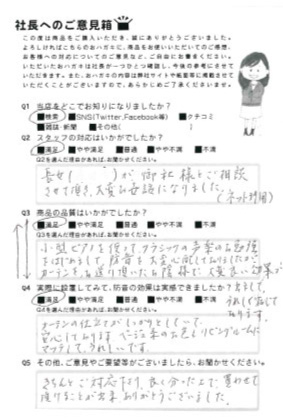 社長へのご意見箱
この度は商品をご購入いただき、誠にありがとうございました。
よろしければこちらのおハガキに、商品をお使いいただいてのご感想、
お客様への対応についてのご意見など、ご自由にお書きください。
いただいたおハガキは社長が一つひとつ確認し、今後の参考にさせて
いただきます。また、おハガキの内容は弊社サイトや紙面等に掲載させて
いただくことがございますので、あらかじめご了承くださいませ。
Q1 当店をどこでお知りになりましたか？
■検索 ■SNS(Twitter,Facebook等) ■クチコミ
■雑誌・新聞 ■その他( )
Q2 スタッフの対応はいかがでしたか？
■満足 ■やや満足 ■普通 ■やや不満 ■不満
Q2を選んだ理由があれば、お聞かせください。
長女( )が御社様とご相談
させて頂き、大変お世話になりました。
(ネット利用)
Q3 商品の品質はいかがでしたか？
■満足 ■やや満足 ■普通 ■やや不満 ■不満
Q3を選んだ理由があれば、お聞かせください。
小型ピアノを使ってクラシックの音楽の
カーテンをお送り頂いたお陰様で、大変良い効果が
Q4 実際に設置してみて、防音の効果は実感できましたか？
■満足 ■やや満足 ■普通 ■やや不満 ■不満
Q4を選んだ理由があれば、お聞かせください。
カーテンの仕立てがしっかりとしていて、
安心しております。
マッチしてうれしいです。
Q5 その他、ご意見やご要望等がございましたら、お聞かせください。
きちんとご対応下さり、良く分った上で、買わせて
頂けることが出来ありがとうございました。